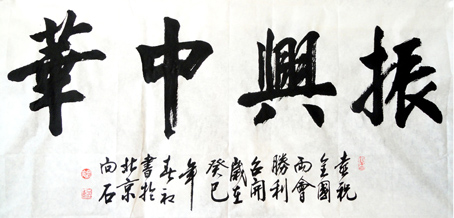 振興中華
喜祝
全國
兩會
勝利
召開
歲在
癸巳
年
春初
書於
北京
向石